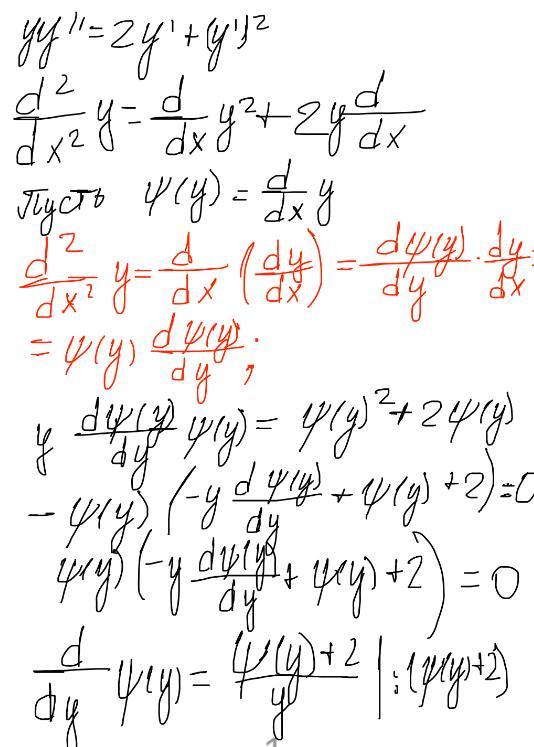 yy'' = 2y' + (y')²
d²/dx² y = d/dx y² + 2y d/dx
Пусть ψ(y) = d/dx y
d²/dx² y = d/dx (dy/dx) = dψ(y)/dy · dy/dx =
= ψ(y) dψ(y)/dy ;
y dψ(y)/dy ψ(y) = ψ(y)² + 2ψ(y)
- ψ(y) (-y dψ(y)/dy + ψ(y) + 2) = 0
ψ(y) (-y dψ(y)/dy + ψ(y) + 2) = 0
d/dy ψ(y) = (ψ(y) + 2)/y | : (ψ(y) + 2)